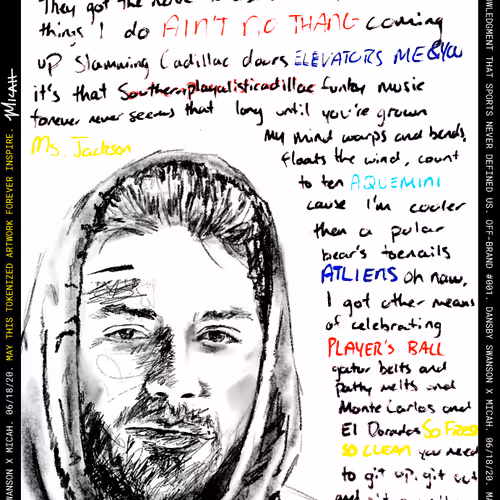 They got the nerve to
things I do AIN'T NO THANG coming
up slamming Cadillac doors ELEVATORS ME & YOU
it's that Southernplayalisticadillac funky music
forever never seems that long until you're grown
Ms. Jackson
My mind warps and bends,
floats the wind, count
to ten AQUEMINI
cause I'm cooler
then a polar
bear's toenails
ATLIENS oh naw,
I got other means
of celebrating
PLAYER'S BALL
gator belts and
patty melts and
Monte Carlos and
El Dorados So Fresh
SO CLEAN you need
to git up, git out
and git
MICAH
SWANSON X MICAH. 06/18/20. MAY THIS TOKENIZED ARTWORK FOREVER INSPIRE.
WLEDGMENT THAT SPORTS NEVER DEFINED US. OFF-BRAND #001. DANSBY SWANSON X MICAH. 06/18/20. M